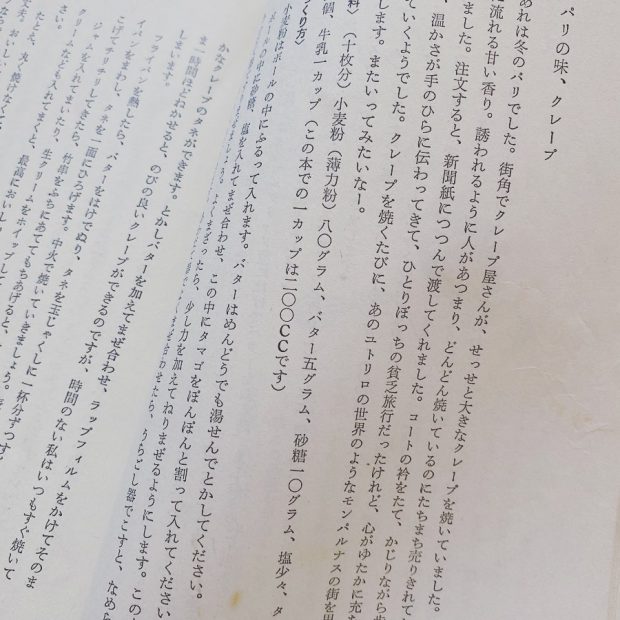 パリの味、クレープ
あれは冬のパリでした。街角でクレープ屋さんが、せっせと大きなクレープを焼いていました。
に流れる甘い香り。誘われるように人があつまり、どんどん焼いているのにたちまち売りきれて
ました。注文すると、新聞紙につつんで渡してくれました。コートの衿をたて、かじりながら歩
、温かさが手のひらに伝わってきて、ひとりぼっちの貧乏旅行だったけれど、心がゆたかに充た
ていくようでした。クレープを焼くたびに、あのユトリロの世界のようなモンパルナスの街を思
します。またいってみたいなー。
料〉（十枚分）小麦粉（薄力粉）八〇グラム、バター五グラム、砂糖一〇グラム、塩少々、タ
個、牛乳一カップ（この本での一カップは二〇〇CCです）
くり方〉
小麦粉はボールの中にふるって入れます。バターはめんどうでも湯せんでとかしてください。
ボールの中に砂糖、塩を入れてまぜ合わせ、この中にタマゴをぽんぽんと割って入れてください
ましょう。よくまざったら、少し力を加えてねりまぜるようにします。この
まぜ合わせたら、うらごし器でこすと、なめら
かなクレープのタネができます。とかしバターを加えてまぜ合わせ、ラップフィルムをかけてそのま
ま一時間ほどねかせると、のびの良いクレープができるのですが、時間のない私はいつもすぐ焼いて
しまいます。
フライパンを熱したら、バターをはけでぬり、タネを玉じゃくしに一杯分ずつす
イパンをまわし、タネを一面にひろげます。中火で焼いていきましょう。
こげてチリチリしてきたら、竹串をふちにあててもちあげると、
ジャムを入れてまいたり、生クリームをホイップして
クリームなども入れてまくと、最高においし
さい。
たとえ、丸く焼けなくて
丈夫。おいし